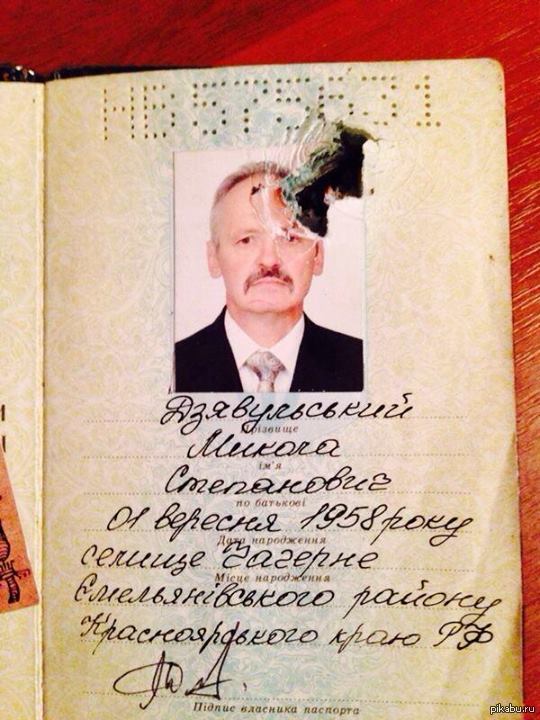 НВ 575631
Дзявульський
Прізвище
Микола
ім'я
Степанович
по батькові
01 вересня 1958 року
Дата народження
селище
Місце народження
Ємельянівського району
Красноярського краю РФ
Підпис власника паспорта
pikabu.ru